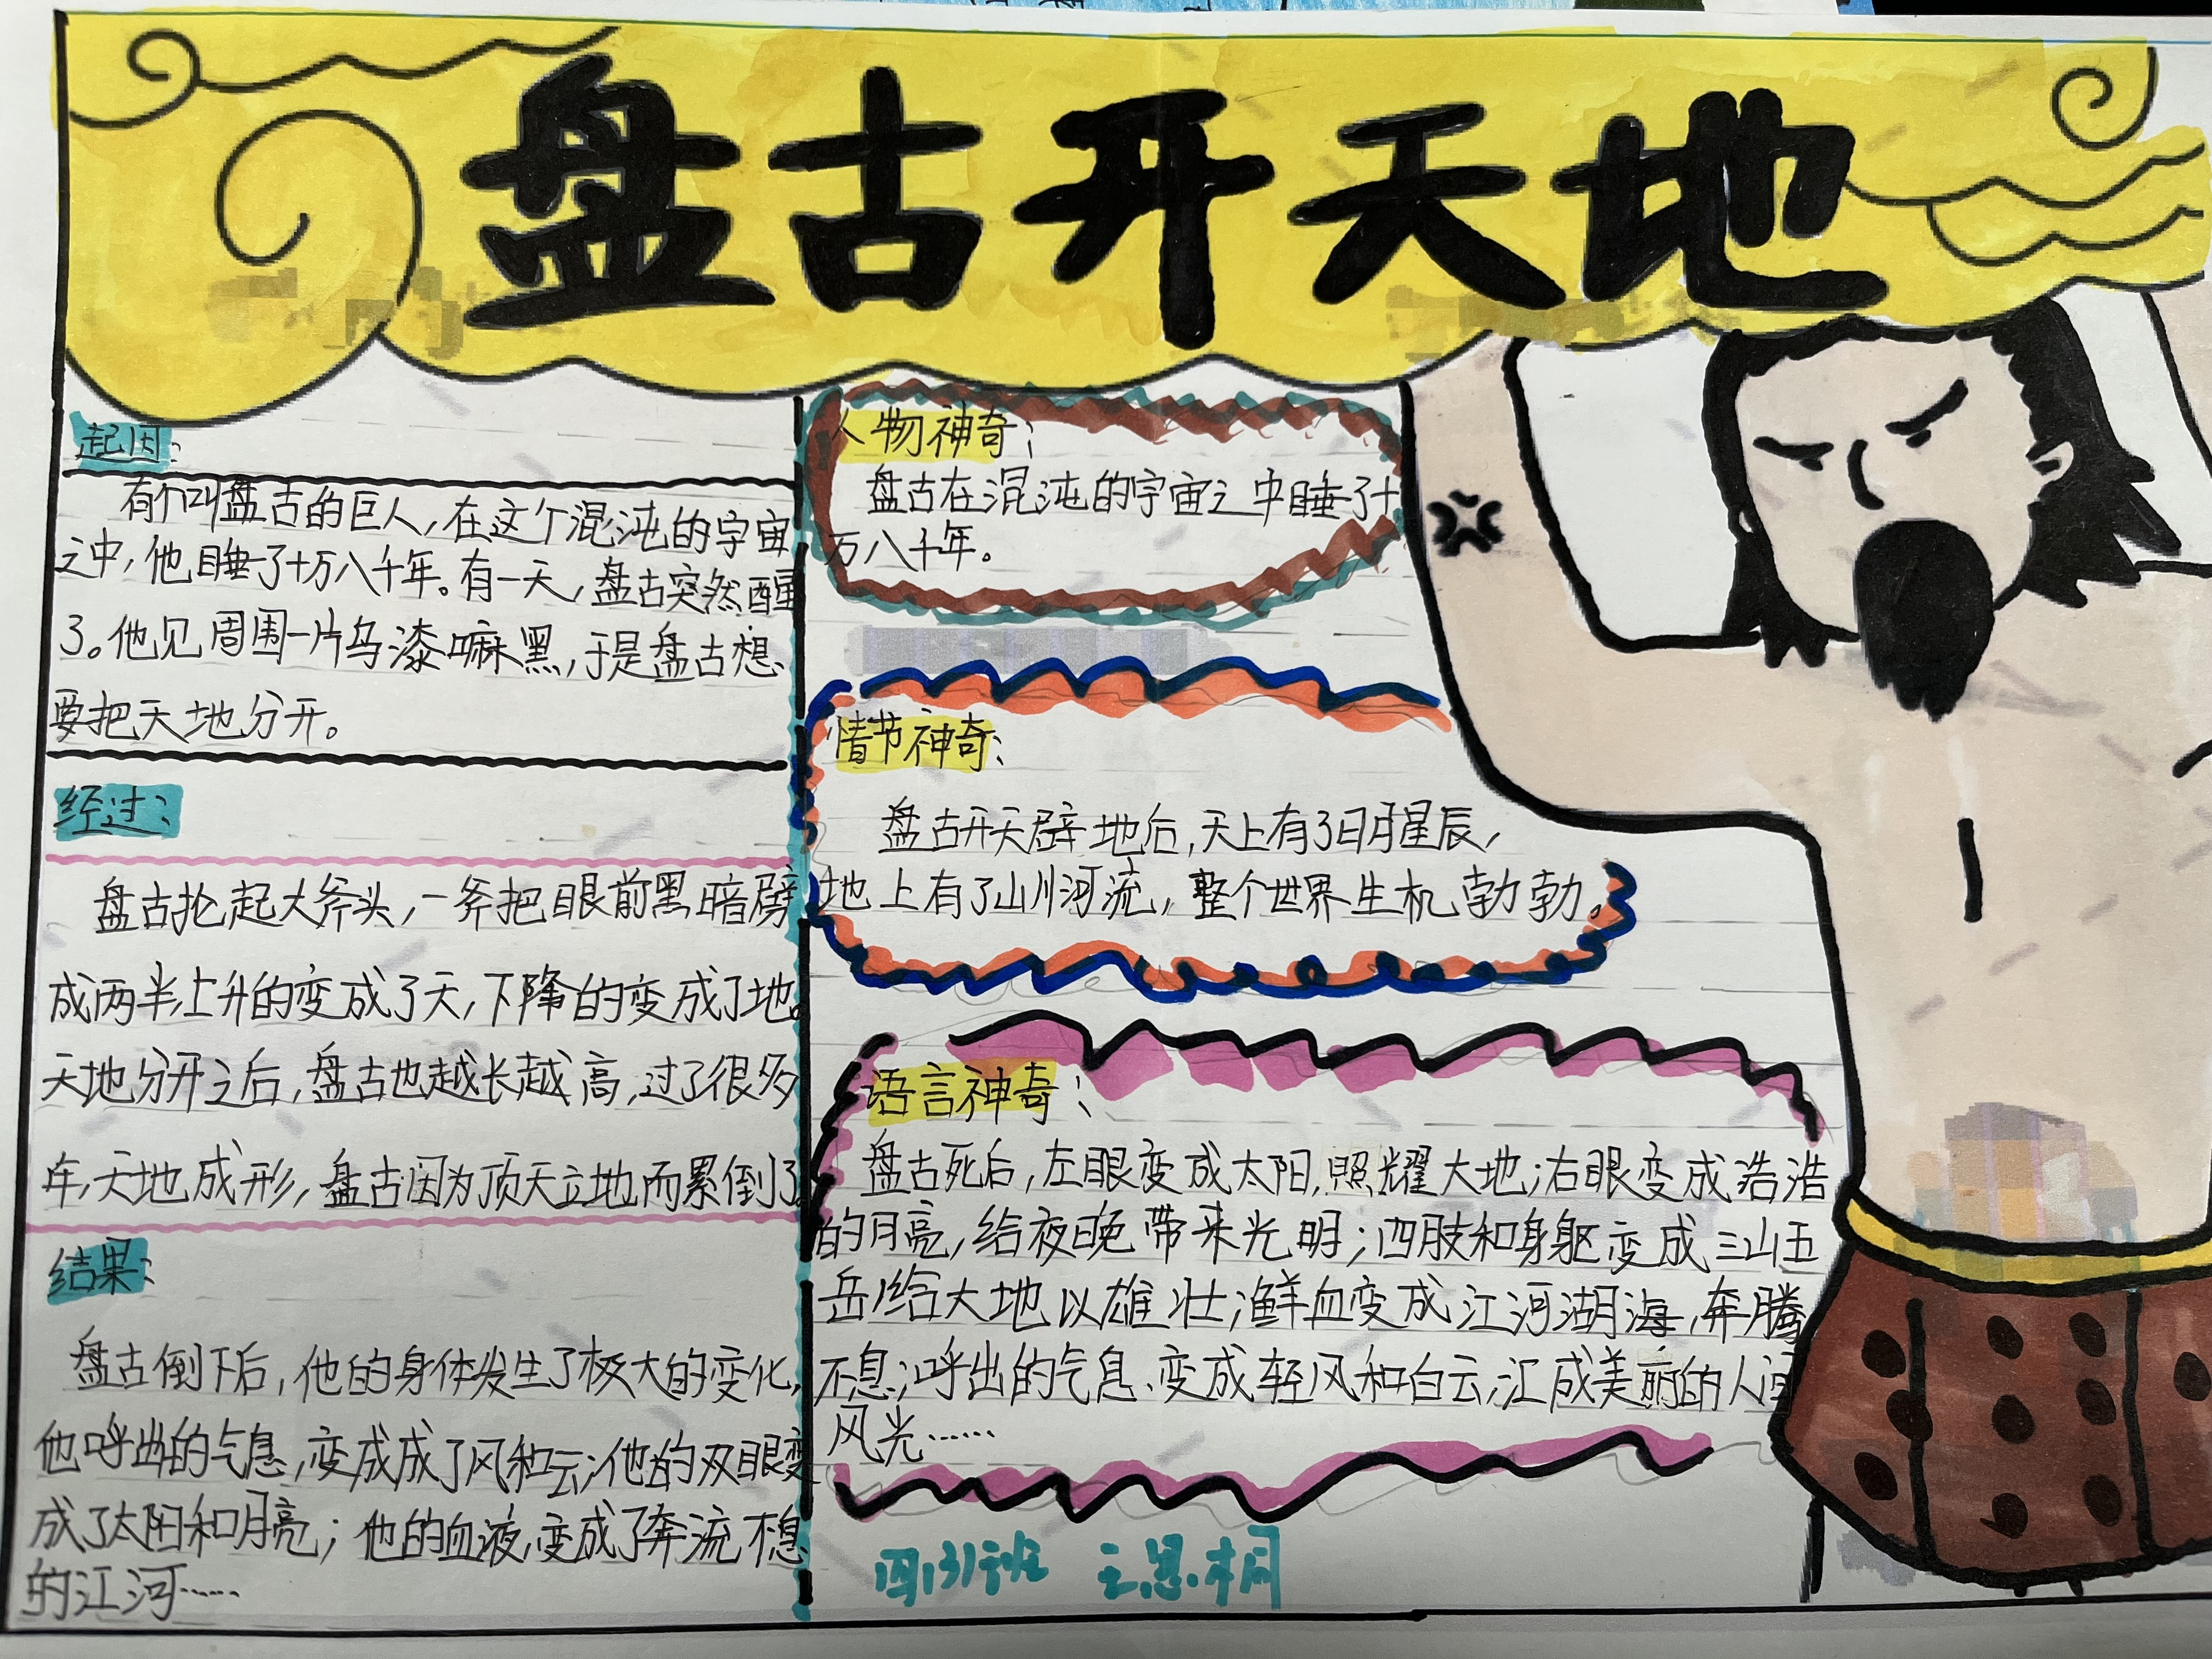 盘古开天地
起因:
有个叫盘古的巨人,在这个混沌的宇宙
之中,他睡了十万八千年。有一天,盘古突然醒
了。他见周围一片乌漆嘛黑,于是盘古想
要把天地分开。
经过:
盘古抡起大斧头,一斧把眼前黑暗劈
成两半,上升的变成了天,下降的变成了地。
天地分开之后,盘古也越长越高,过了很多
年,天地成形,盘古因为顶天立地而累倒了。
结果:
盘古倒下后,他的身体发生了极大的变化,
他呼出的气息,变成成了风和云;他的双眼变
成了太阳和月亮;他的血液,变成了奔流不息
的江河……
人物神奇:
盘古在混沌的宇宙之中睡了十
万八千年。
情节神奇:
盘古开天辟地后,天上有了日月星辰,
地上有了山川河流,整个世界生机勃勃。
语言神奇:
盘古死后,左眼变成太阳,照耀大地;右眼变成浩浩
的月亮,给夜晚带来光明;四肢和身躯变成三山五
岳,给大地以雄壮;鲜血变成江河湖海,奔腾
不息;呼出的气息、变成轻风和白云,汇成美丽的人间
风光……
四(3)班 王思桐